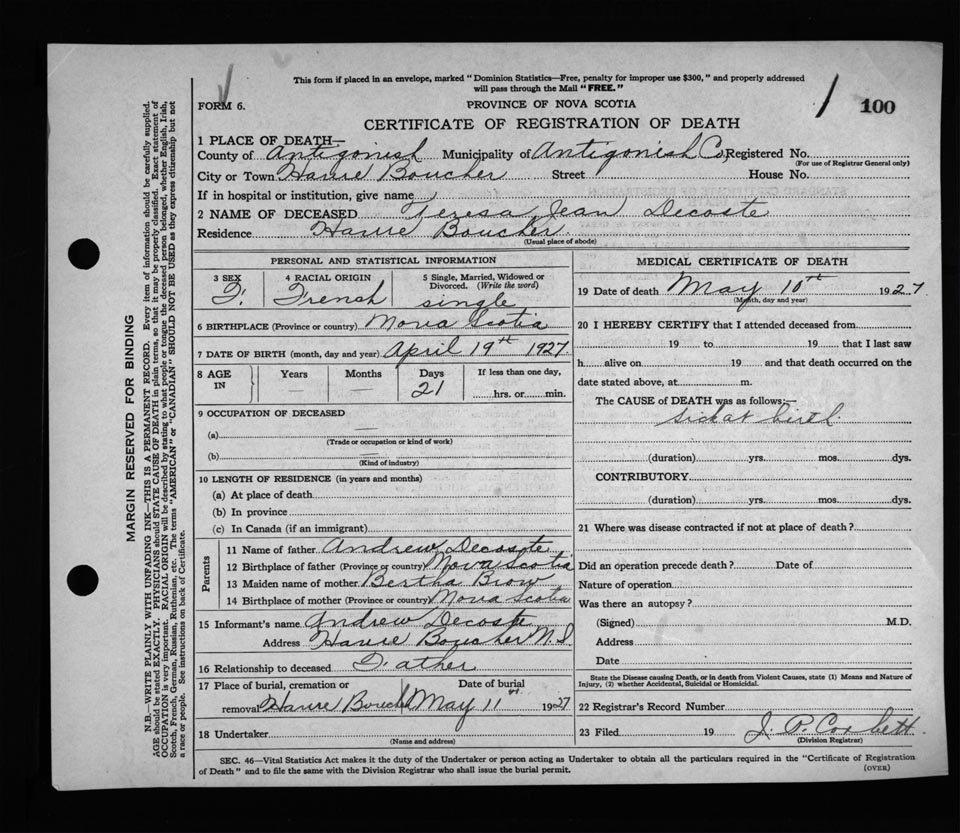 This form if placed in an envelope, marked "Dominion Statistics—Free, penalty for improper use $300," and properly addressed
will pass through the Mail "FREE."
FORM 6.
PROVINCE OF NOVA SCOTIA
100
CERTIFICATE OF REGISTRATION OF DEATH
1 PLACE OF DEATH—
County of Antigonish Municipality of Antigonish Co, Registered No.
(For use of Registrar General only)
City or Town Havre Boucher Street House No.
If in hospital or institution, give name
2 NAME OF DECEASED Teresa Jean Decoste
Residence Havre Boucher
(Usual place of abode)
PERSONAL AND STATISTICAL INFORMATION
3 SEX 4 RACIAL ORIGIN 5 Single, Married, Widowed or
Divorced. (Write the word)
F. French single
6 BIRTHPLACE (Province or country) Nova Scotia
7 DATE OF BIRTH (month, day and year) April 19th 1927
8 AGE IN Years Months Days If less than one day,
— — 21 hrs. or min.
9 OCCUPATION OF DECEASED
(a) —
(Trade or occupation or kind of work)
(b) —
(Kind of industry)
10 LENGTH OF RESIDENCE (in years and months)
(a) At place of death
(b) In province
(c) In Canada (if an immigrant)
Parents
11 Name of father Andrew Decoste
12 Birthplace of father (Province or country) Nova Scotia
13 Maiden name of mother Bertha Brow
14 Birthplace of mother (Province or country) Nova Scotia
15 Informant's name Andrew Decoste
Address Havre Boucher N.S.
16 Relationship to deceased Father
17 Place of burial, cremation or Date of burial
removal Havre Boucher May 11th 1927
18 Undertaker
(Name and address)
MEDICAL CERTIFICATE OF DEATH
19 Date of death May 10th 1927
(Month, day and year)
20 I HEREBY CERTIFY that I attended deceased from
19 to 19 that I last saw
h alive on 19 and that death occurred on the
date stated above, at m.
The CAUSE of DEATH was as follows:—
sick at birth
(duration) yrs. mos. dys.
CONTRIBUTORY
(duration) yrs. mos. dys.
21 Where was disease contracted if not at place of death?
Did an operation precede death? Date of
Nature of operation
Was there an autopsy?
(Signed) M.D.
Address
Date
State the Disease causing Death, or in death from Violent Causes, state (1) Means and Nature of
Injury, (2) whether Accidental, Suicidal or Homicidal.
22 Registrar's Record Number
23 Filed 19 J. P. Corbett
(Division Registrar)
SEC. 46—Vital Statistics Act makes it the duty of the Undertaker or person acting as Undertaker to obtain all the particulars required in the "Certificate of Registration
of Death" and to file the same with the Division Registrar who shall issue the burial permit.
(OVER)
MARGIN RESERVED FOR BINDING
N.B.—WRITE PLAINLY WITH UNFADING INK—THIS IS A PERMANENT RECORD. Every item of information should be carefully supplied.
AGE should be stated EXACTLY. PHYSICIANS should STATE CAUSE OF DEATH in plain terms, so that it may be properly classified. Exact statement of
OCCUPATION is very important. RACIAL ORIGIN will be described by stating to what people or tongue the deceased person belonged, whether English, Irish,
Scotch, French, German, Russian, Ruthenian, etc. The terms "AMERICAN" or "CANADIAN" SHOULD NOT BE USED as they express citizenship but not
a race or people. See instructions on back of Certificate.